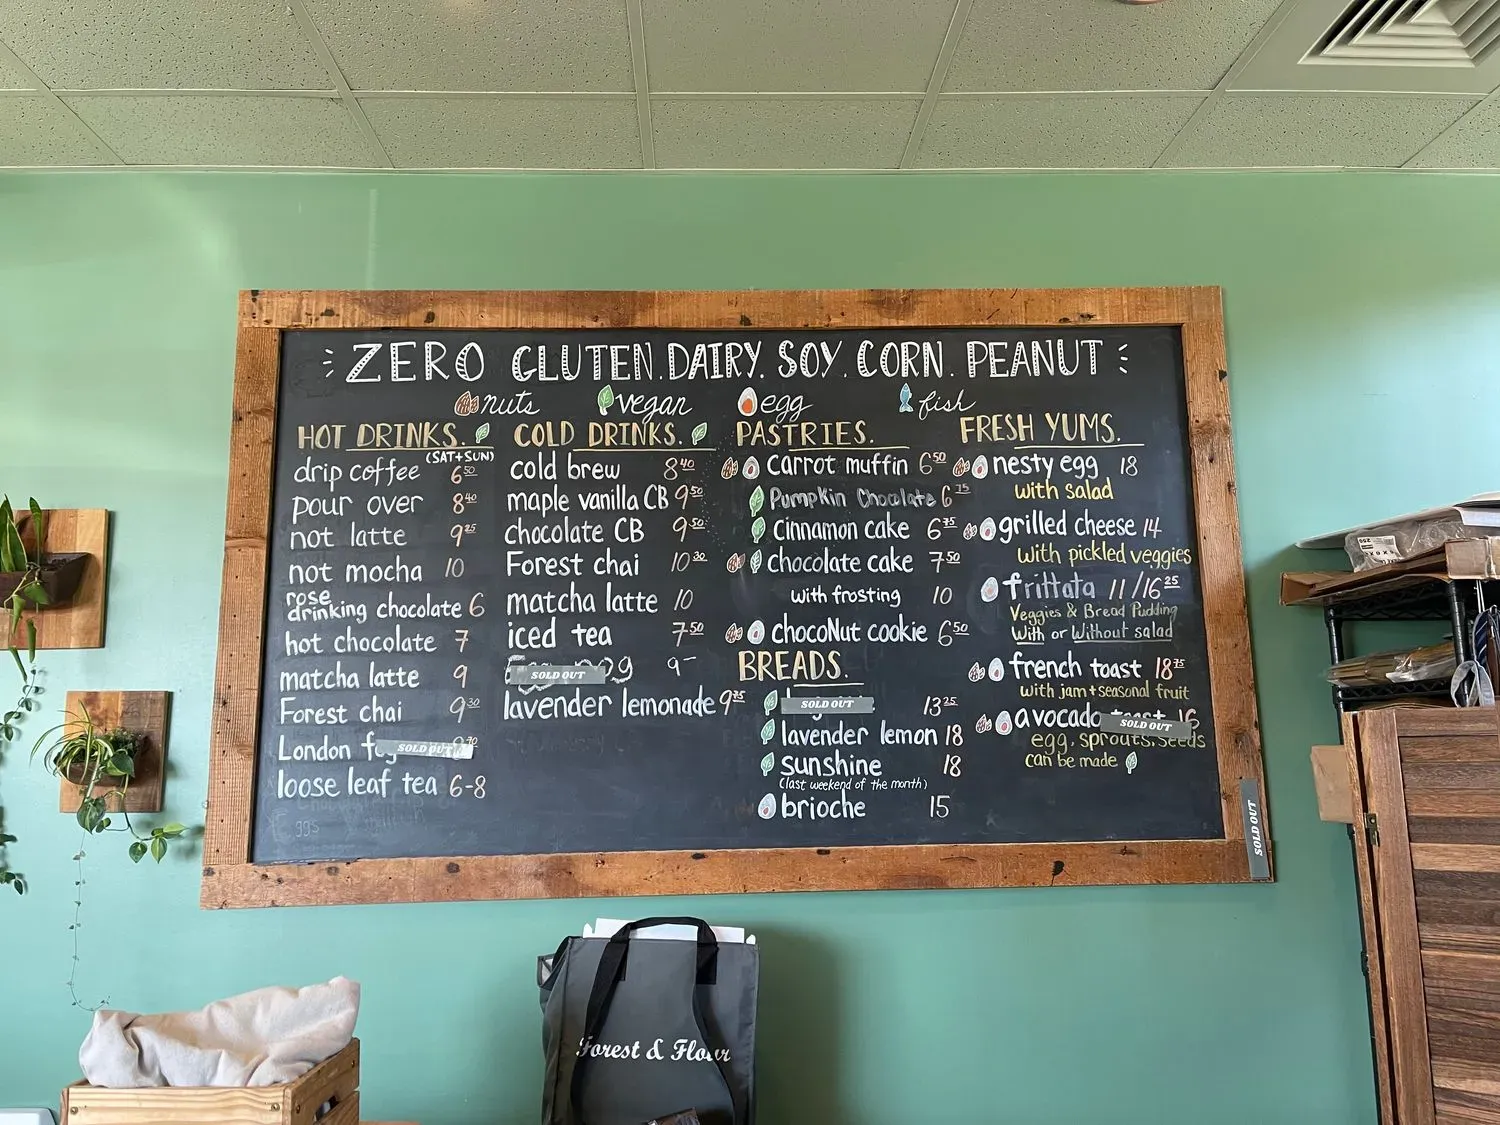 ZERO GLUTEN. DAIRY. SOY. CORN. PEANUT
nuts vegan egg fish
HOT DRINKS.
(SAT+SUN)
drip coffee 6.50
pour over 8.40
not latte 9.25
not mocha 10
rose
drinking chocolate 6
hot chocolate 7
matcha latte 9
Forest chai 9.30
London SOLD OUT
loose leaf tea 6-8
COLD DRINKS.
cold brew 8.40
maple vanilla CB 9.50
chocolate CB 9.50
Forest chai 10.30
matcha latte 10
iced tea 7.50
SOLD OUT 9-
lavender lemonade 9.75
PASTRIES.
carrot muffin 6.50
Pumpkin Chocolate 6.75
cinnamon cake 6.75
chocolate cake 7.50
with frosting 10
chocoNut cookie 6.50
BREADS.
SOLD OUT 13.25
lavender lemon 18
sunshine 18
(last weekend of the month)
brioche 15
FRESH YUMS.
nesty egg 18
with salad
grilled cheese 14
with pickled veggies
frittata 11/16.25
Veggies & Bread Pudding
With or Without salad
french toast 18.75
with jam + seasonal fruit
avocado toast 16
SOLD OUT
egg, sprouts, seeds
can be made
SOLD OUT
Forest & Flour